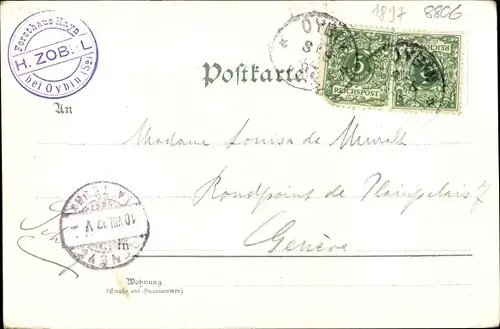 1897 8806
Forsthaus Hayn
H. ZOBEL
bei Oybin (Sa)
OYBIN
OYBIN
5
REICHSPOST
REICHSPOST
Postkarte
An
Madame Louisa de Muralt
Rondpoint de Plainpalais 7
Genève
10.VIII.97.V
GENÈVE
Wohnung
(Straße und Hausnummer)